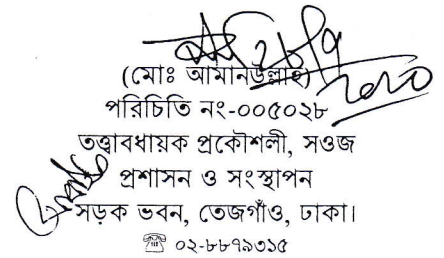 (মোঃ আমানউল্লাহ)
পরিচিতি নং-০০৫০২৮
তত্ত্বাবধায়ক প্রকৌশলী, সওজ
প্রশাসন ও সংস্থাপন
সড়ক ভবন, তেজগাঁও, ঢাকা।
☎ ০২-৮৮৭৯৩১৫